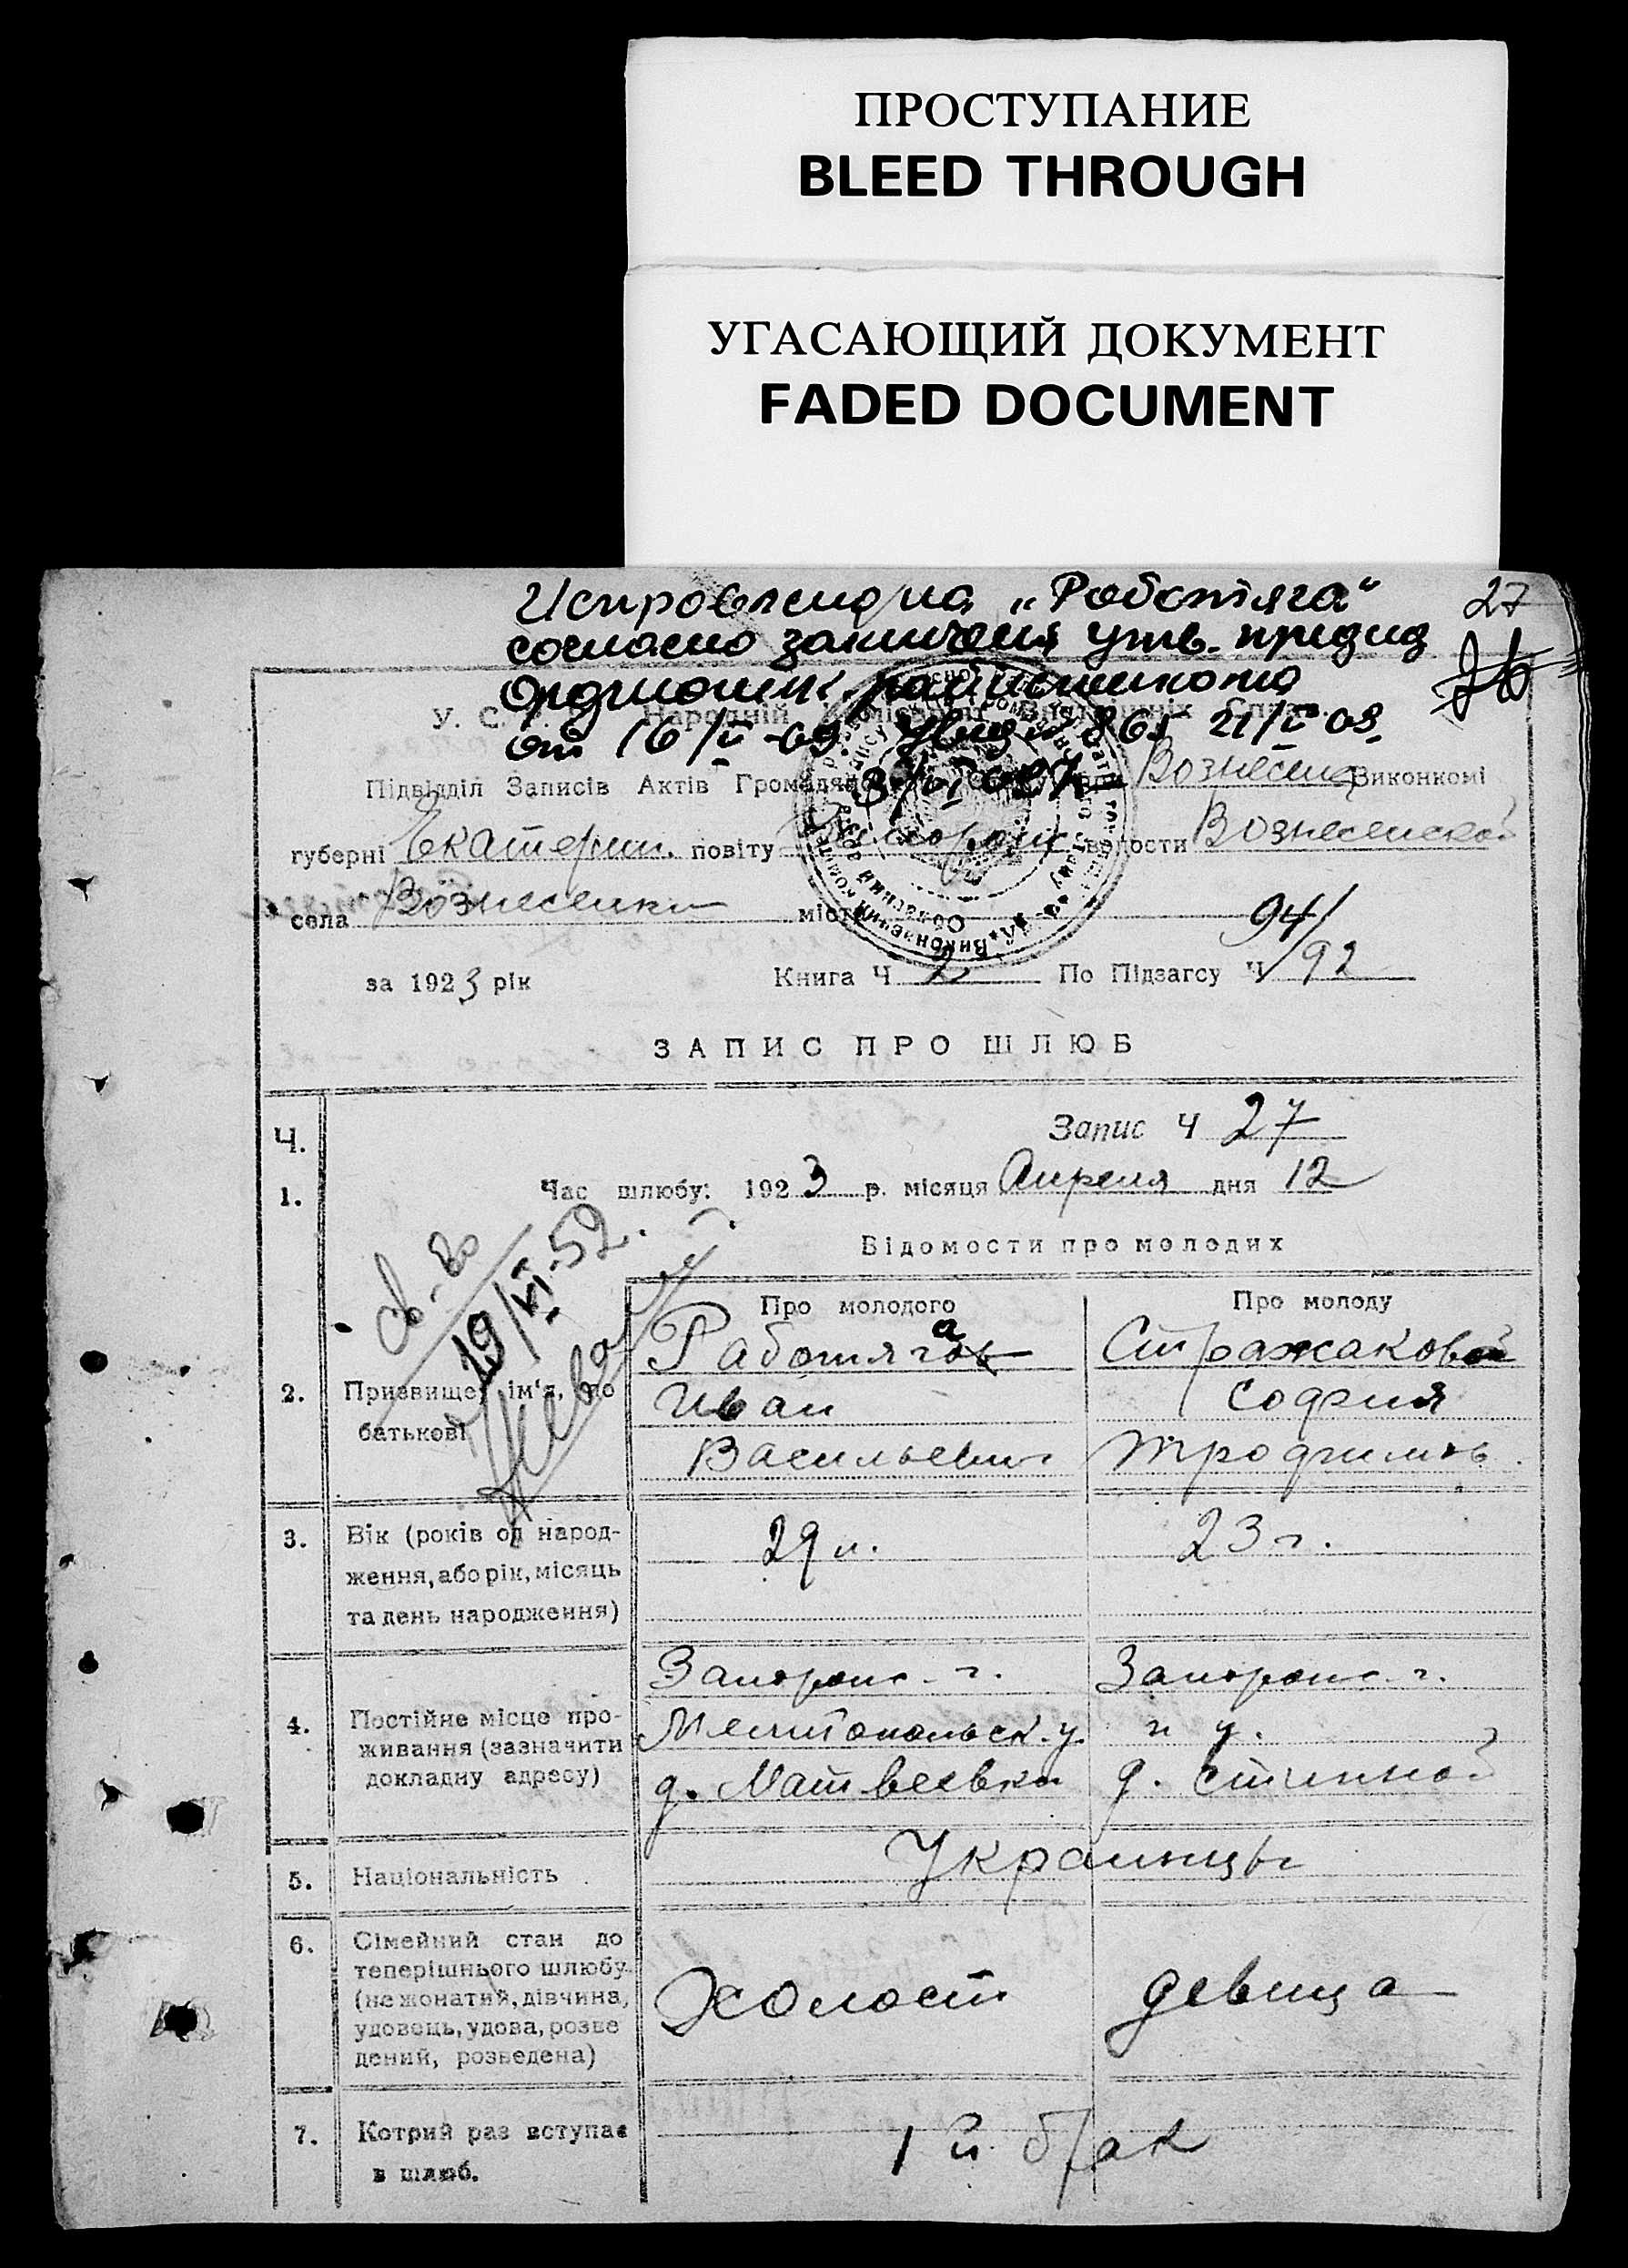 ПРОСТУПАНИЕ
BLEED THROUGH
УГАСАЮЩИЙ ДОКУМЕНТ
FADED DOCUMENT
Исправлено на „Работяга“ 27
согласно утв.
от 16/ 865 21/
У. С. Народній
Підвідділ Записів Актів Вознесенск Виконкомі
губерні Екатерин. повіту волости Вознесенской
села Вознесенки міста 94/
за 1923 рік Книга Ч 2 По Підзагсу Ч 92
ЗАПИС ПРО ШЛЮБ
Ч. Запис Ч 27
1. Час шлюбу: 1923 р. місяця Апреля дня 12
19/VI-52.
Відомости про молодих
Про молодого Про молоду
Работягов а Стражаковой
2. Призвище, ім'я, по Иван София
батькові Васильевич Трофимов.
3. Вік (років од народ- 29 л. 23 г.
ження, або рік, місяць
та день народження)
Запорож. г. Запорож. г.
4. Постійне місце про- Мелитопольск. у. и у.
живання (зазначити
докладну адресу) д. Матвеевки д.
5. Національність Украинцы
6. Сімейний стан до
теперішнього шлюбу
(не жонатий, дівчина, Холост девица
удовець, удова, розве
дений, розведена)
7. Котрий раз вступає 1й брак
в шлюб.